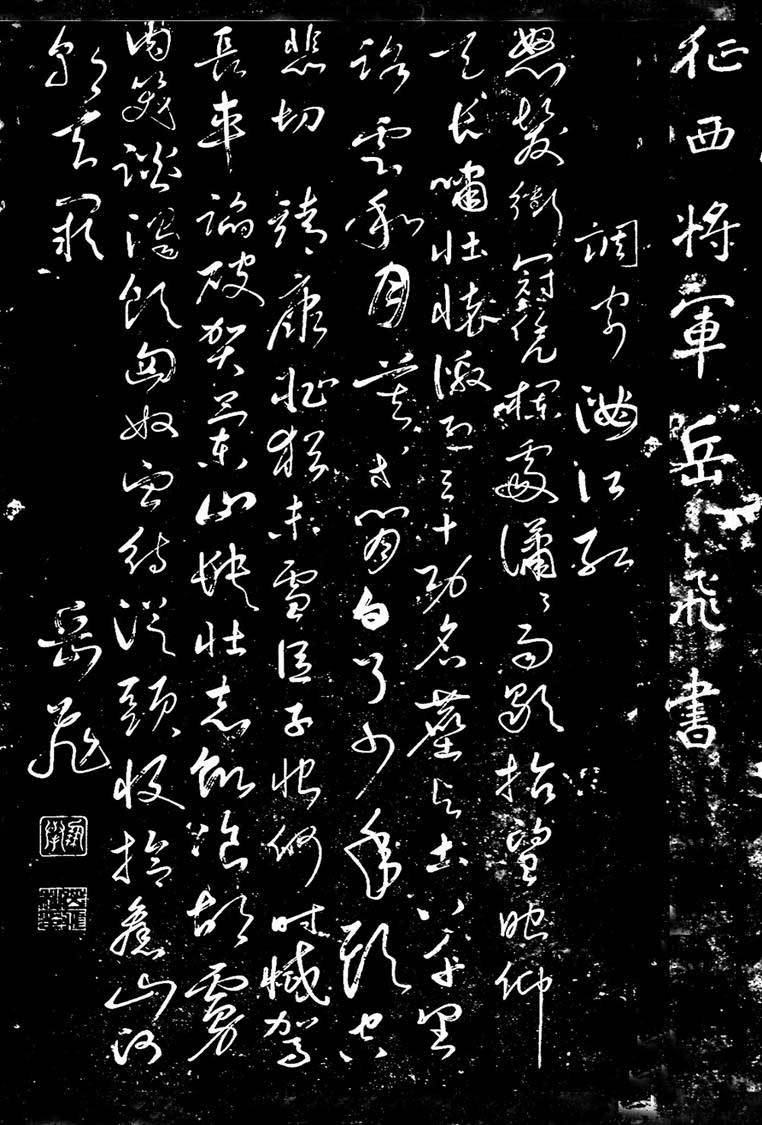 征西將軍岳飛書
調寄滿江紅
怒髮衝冠凭欄處瀟瀟雨歇抬望眼仰
天長嘯壯懷激烈三十功名塵與土八千里
路雲和月莫等閒白了少年頭空
悲切 靖康恥猶未雪臣子恨何時憾駕
長車踏破賀蘭山缺壯志飢飡胡虜
肉笑談渴飲匈奴血待從頭收拾舊山河
朝天闕
岳飛